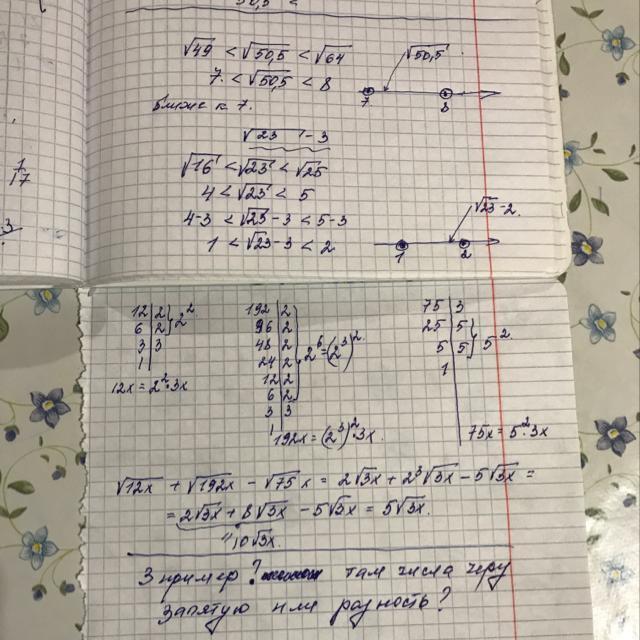 √49 < √50,5 < √64
7 < √50,5 < 8
Ближе к 7.
√50,5
7 8
√23 - 3
√16 < √23 < √25
4 < √23 < 5
4-3 < √23 - 3 < 5-3
1 < √23 - 3 < 2
√23 - 2.
1 2
1/17
12 | 2
6 | 2
3 | 3
1
2²
12x = 2²·3x
192 | 2
96 | 2
48 | 2
24 | 2
12 | 2
6 | 2
3 | 3
1
2⁶ = (2³)²
192x = (2³)²·3x.
75 | 3
25 | 5
5 | 5
1
5²
75x = 5²·3x
√12x + √192x - √75x = 2√3x + 2³√3x - 5√3x =
= 2√3x + 8√3x - 5√3x = 5√3x.
10√3x.
3 пример? там числа черу
запятую или разность?